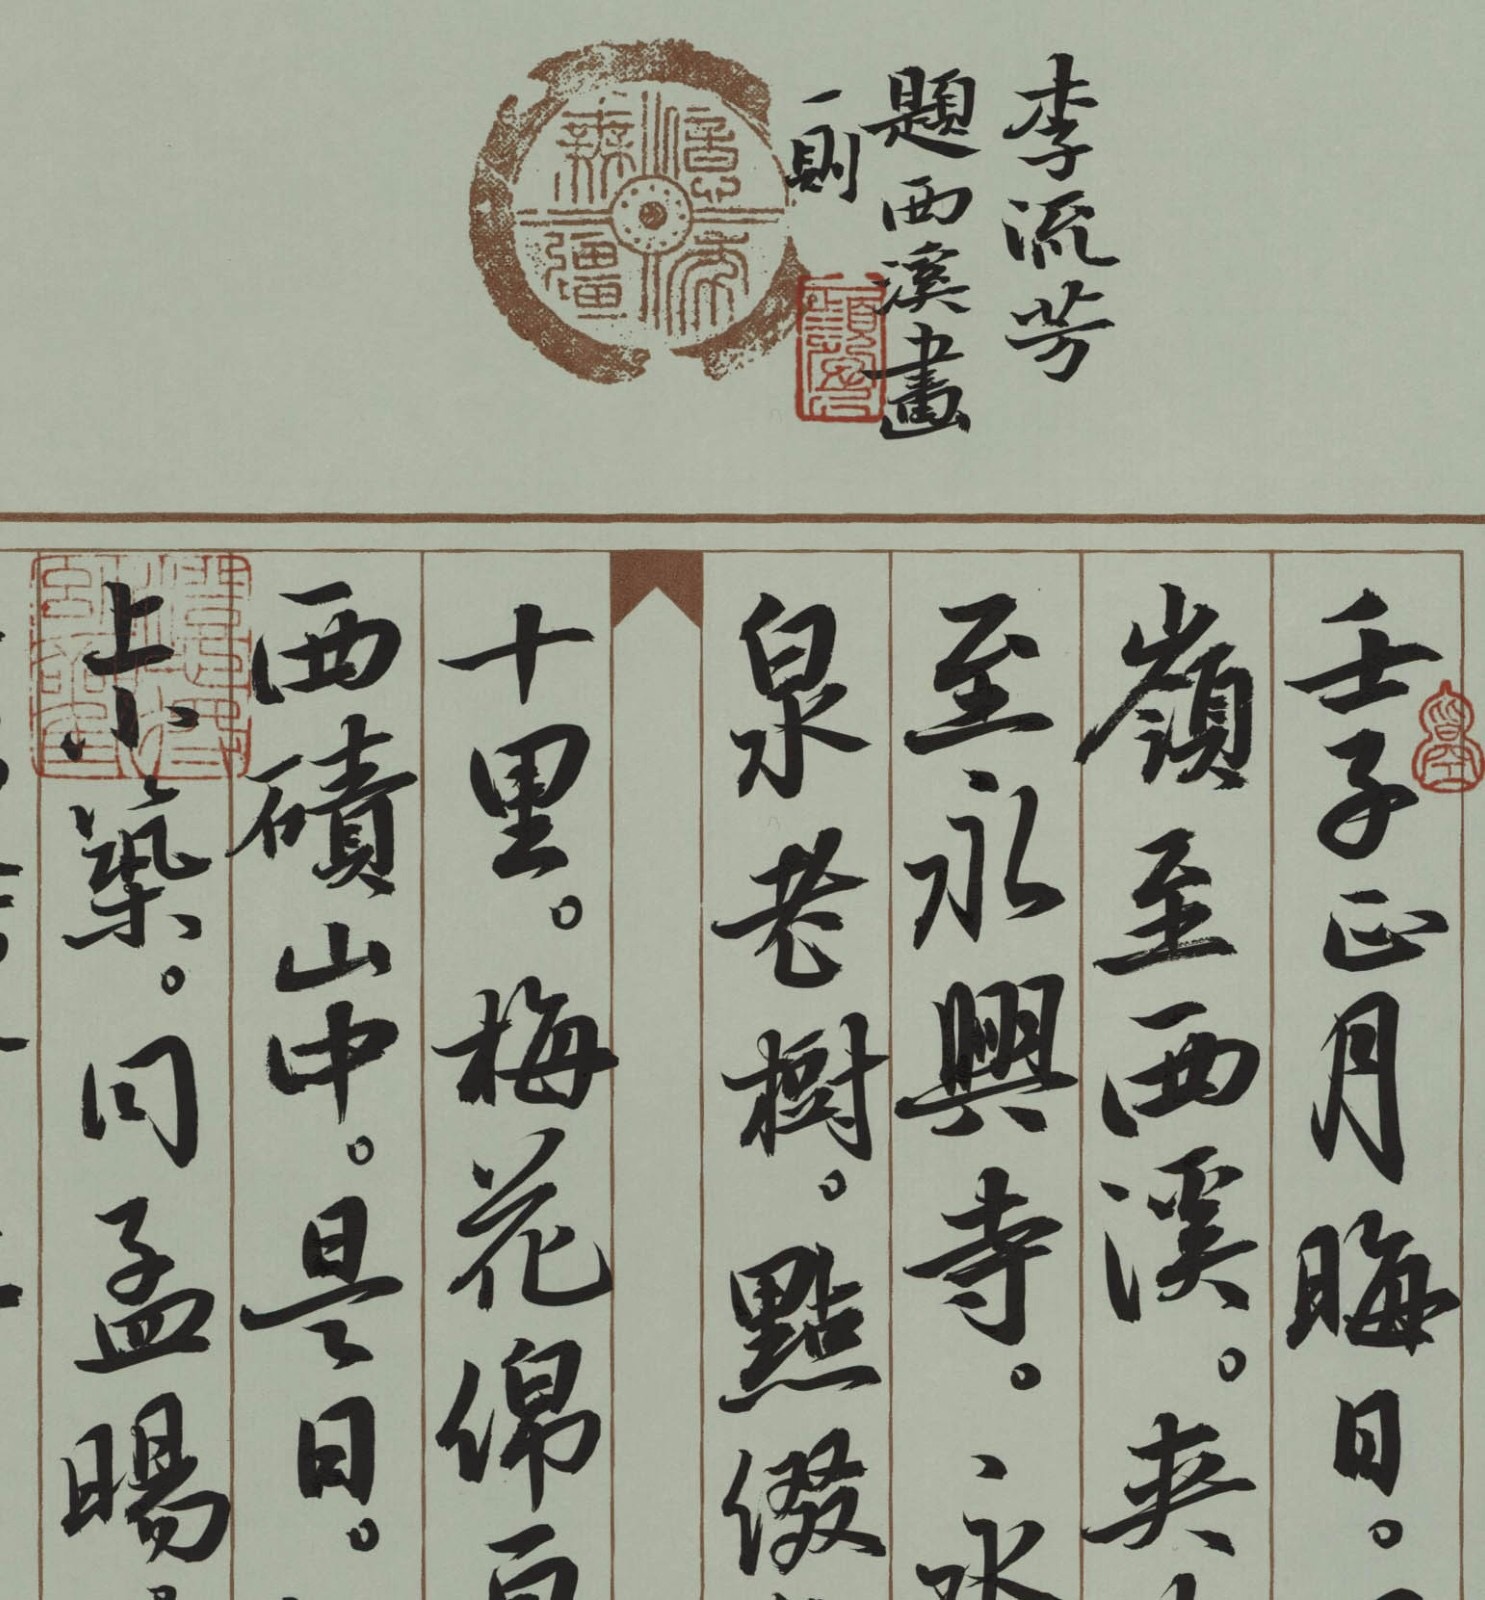 李流芳
題西溪畫
一則
億年無疆
壬子正月晦日。
嶺至西溪。夾
至永興寺。永
泉老樹。點綴
十里。梅花綿亘
西磧山中。是日。
上小築。同孟暘